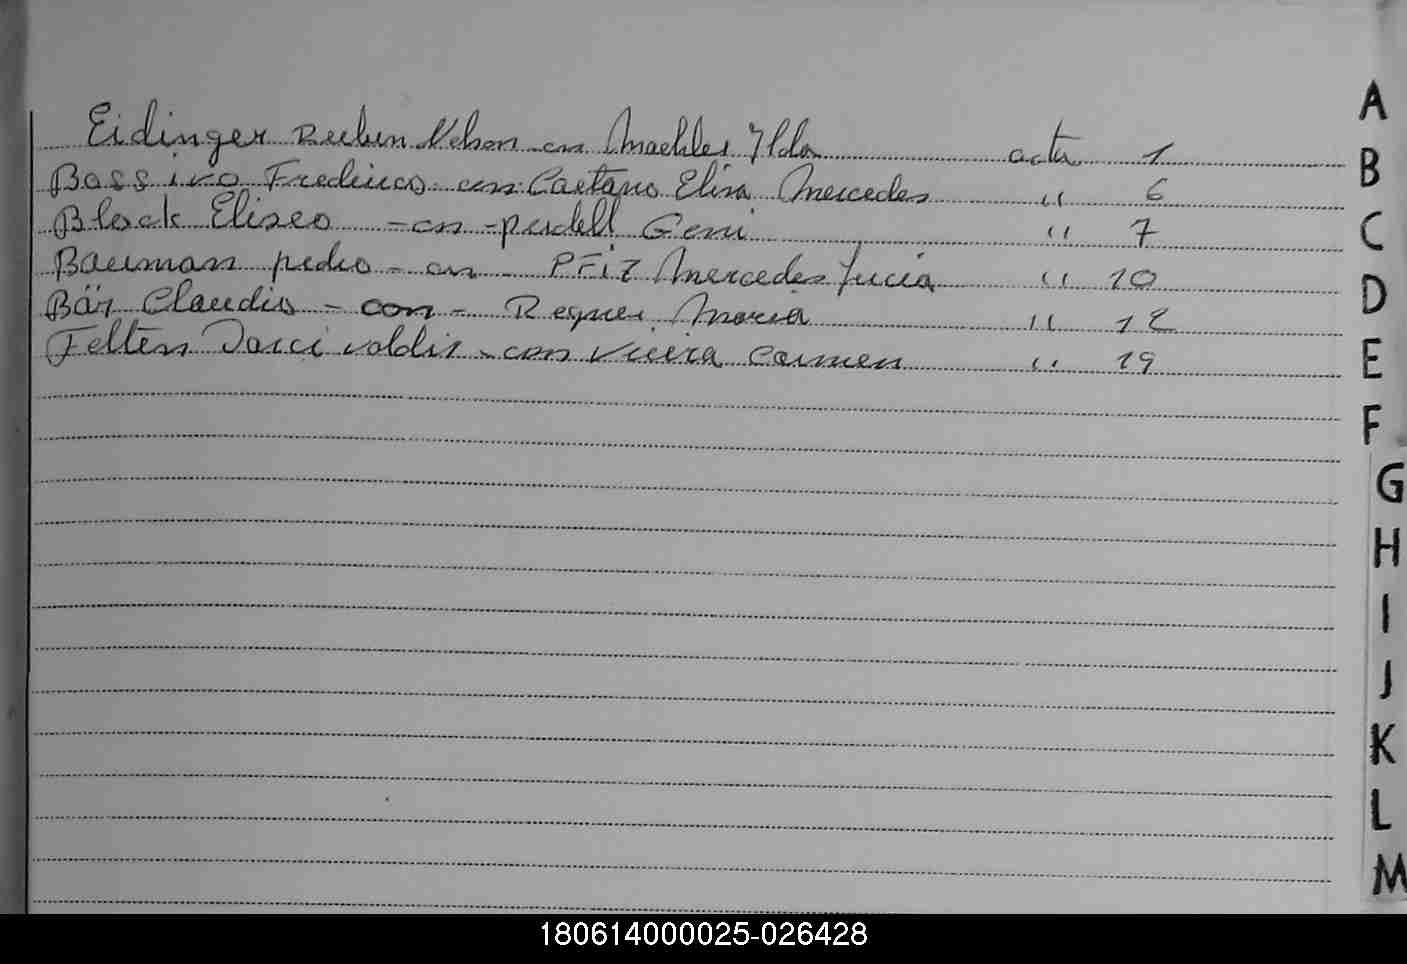 Eidinger Ruben Nelson con Maehler Ilda acta 1
Bassivo Frederico con Caetano Elisa Mercedes " 6
Block Eliseo - con - perdell Geni " 7
Bauman pedro - con - PFiz Mercedes Lucia " 10
Bär Claudio - con - Regner Maria " 12
Felten Darci valdir - con Vieira Carmen " 19
A
B
C
D
E
F
G
H
I
J
K
L
M
180614000025-026428